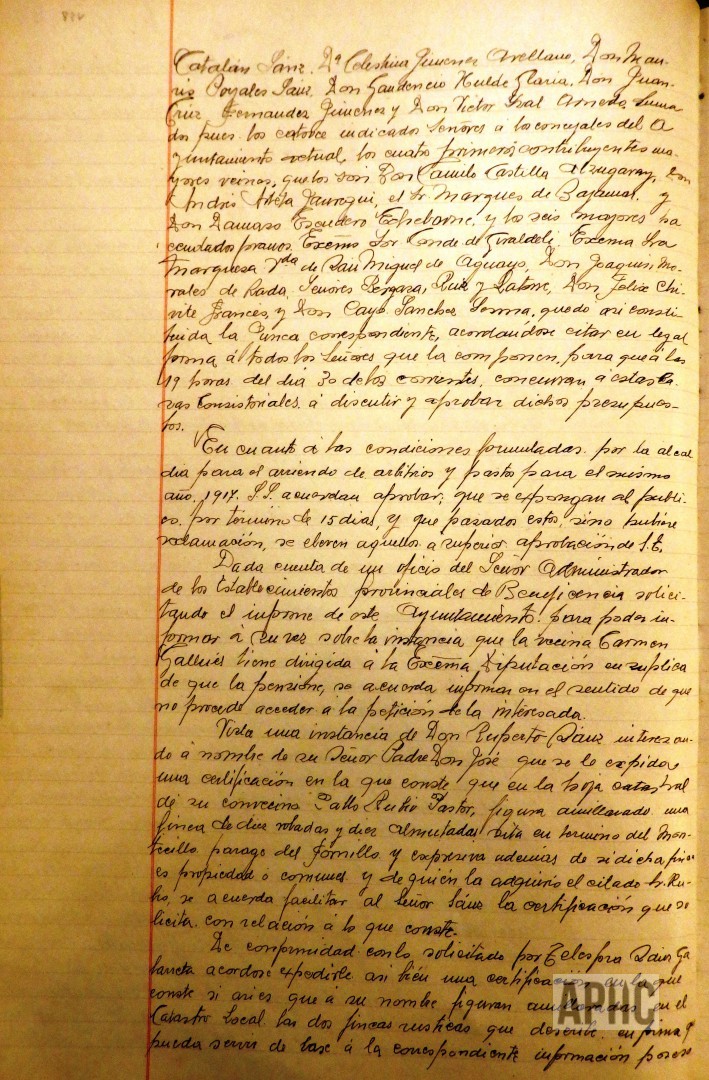 Catalán Sanz, Dª Celestina Jimenez Arellano, Don Mau-
ris Poyales Sanz, Don Gaudencio Hualde Olaria, Don Juan
Cruz Fernandez Jimenez y Don Victor Leal Arneda, suma
dos pues los catorce indicados Señores á los concejales del A
yuntamiento actual, los cuatro primeros contribuyentes ma
yores vecinos, que los son Don Camilo Castilla Alzugaray, Don
Andrés Arteta Jauregui, el Sr Marques de Bajamar y
Don Damaso Escudero Echebarne, y los seis mayores ha
cendados Excmo Sor Conde de Giraldeli, Excma Sra
Marquesa Vda de San Miguel de Aguayo, Don Joaquin Mo-
rales de Rada, Señores Pergara, Ruiz y Latorre, Don Felix Chi
vite Frances, y Don Cayo Sanchez Lerma, quedo asi consti
tuida la Junta correspondiente, acordandose citar en legal
forma á todos los Señores que la componen, para que á las
19 horas del dia 30 de los corrientes, concurran á estas Ca
sas Consistoriales á discutir y aprobar dichos presupues-
tos.
En cuanto á las condiciones formuladas por la alcal
dia para el arriendo de arbitrios y pastos para el mismo
año, 1917. S.S. acuerdan aprobar, que se expongan al públi-
co, por termino de 15 dias, y que pasados estos, si no hubiere
reclamación, se eleven aquellos a superior aprobación de S.E.
Dada cuenta de un oficio del Señor Administrador
de los Establecimientos provinciales de Beneficencia solici-
tando el informe de este Ayuntamiento para poder in-
formar á su vez sobre la instancia que la vecina Carmen
tiene dirigida á la Excma Diputación en suplica
de que la pensione, se acuerda informar en el sentido de que
no procede acceder á la petición de la interesada.
Vista una instancia de Don Ruperto Sainz interesan-
do á nombre de su Señor Padre Don José que se le expida
una certificación en la que conste que en la hoja catastral
de su convecino Pablo Rubio Pastor, figura amillarado una
finca de diez robadas y diez almutadas sita en termino del Mon-
tecillo parage del Tornillo y expresiva además de si dicha finca
es propiedad ó comunes y de quién la adquirio el citado Sr. Ru-
bio, se acuerda facilitar al Señor Sáinz la certificación que so
licita con relación á lo que conste.
De conformidad con lo solicitado por Telesfora Sainz Ga
acordose expedirle asi bién una certificación en la que
conste si asi es que a su nombre figuran amillaradas en el
Catastro Local las dos fincas rusticas que describe en forma q
pueda servir de base á la correspondiente información poseso
APHC